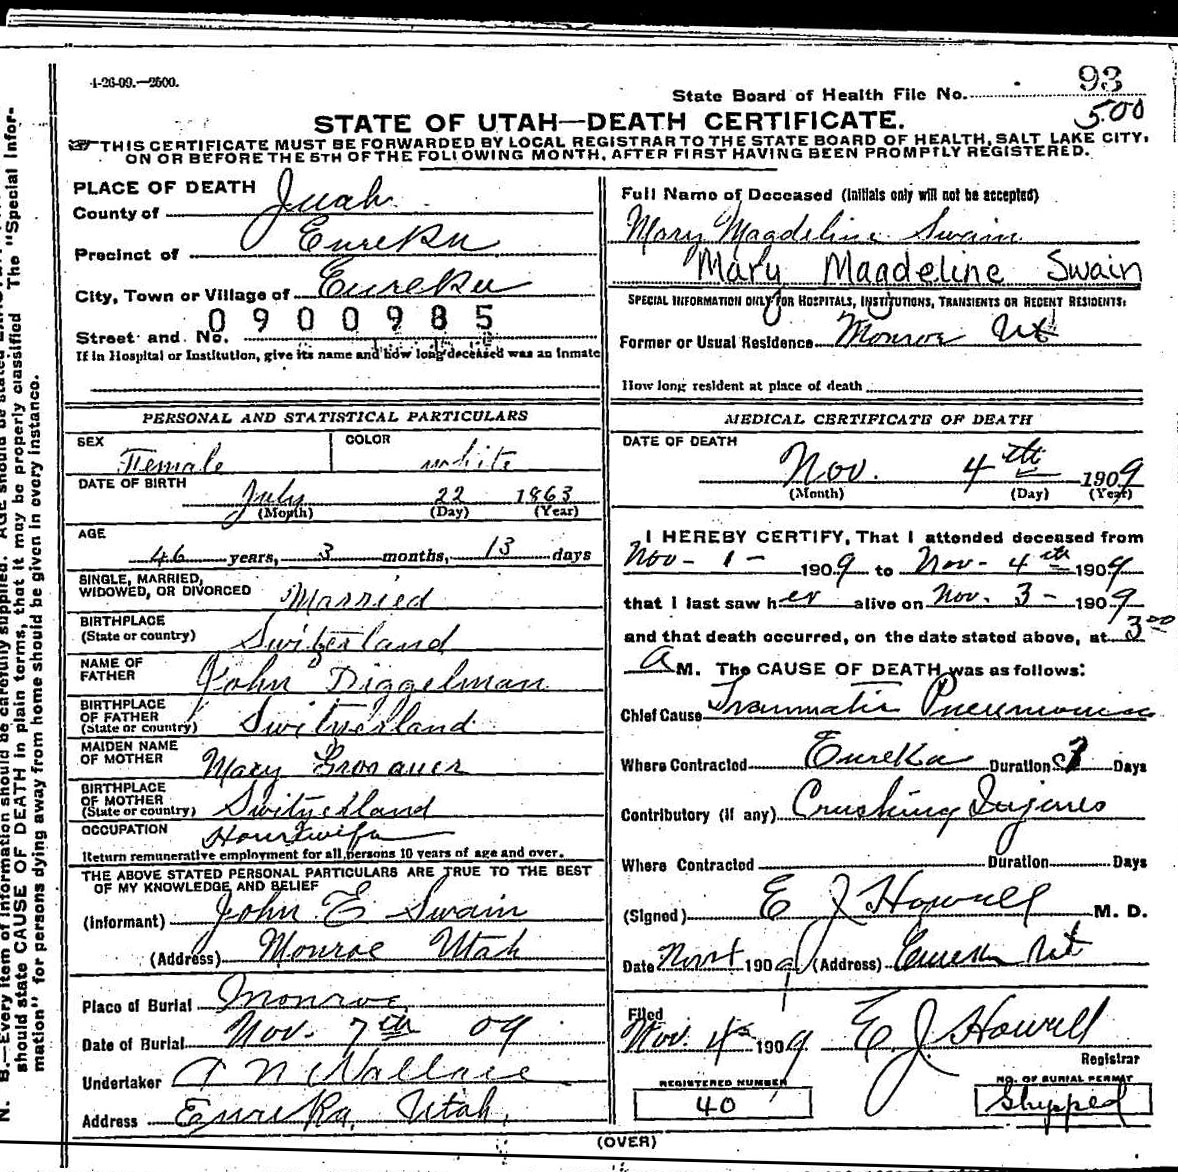 4-26-09.—2500.
93
State Board of Health File No.
500
STATE OF UTAH—DEATH CERTIFICATE.
THIS CERTIFICATE MUST BE FORWARDED BY LOCAL REGISTRAR TO THE STATE BOARD OF HEALTH, SALT LAKE CITY,
ON OR BEFORE THE 5TH OF THE FOLLOWING MONTH, AFTER FIRST HAVING BEEN PROMPTLY REGISTERED.
PLACE OF DEATH
County of Juab
Precinct of Eureka
City, Town or Village of Eureka
0900985
Street and No.
If in Hospital or Institution, give its name and how long deceased was an inmate
Full Name of Deceased (Initials only will not be accepted)
Mary Magdeline Swain
Mary Magdeline Swain
SPECIAL INFORMATION ONLY FOR HOSPITALS, INSTITUTIONS, TRANSIENTS OR RECENT RESIDENTS:
Former or Usual Residence Monroe Ut
How long resident at place of death
PERSONAL AND STATISTICAL PARTICULARS
SEX Female COLOR white
DATE OF BIRTH July 22 1863
(Month) (Day) (Year)
AGE
46 years, 3 months, 13 days
SINGLE, MARRIED,
WIDOWED, OR DIVORCED Married
BIRTHPLACE
(State or country) Switzerland
NAME OF
FATHER John Diggelman
BIRTHPLACE
OF FATHER
(State or country) Switzerland
MAIDEN NAME
OF MOTHER Mary Gronauer
BIRTHPLACE
OF MOTHER
(State or country) Switzerland
OCCUPATION Housewife
Return remunerative employment for all persons 10 years of age and over.
THE ABOVE STATED PERSONAL PARTICULARS ARE TRUE TO THE BEST
OF MY KNOWLEDGE AND BELIEF
(Informant) John E Swain
(Address) Monroe Utah
Place of Burial Monroe
Date of Burial Nov. 7th 09
Undertaker Wallace
Address Eureka, Utah,
MEDICAL CERTIFICATE OF DEATH
DATE OF DEATH
Nov. 4th 1909
(Month) (Day) (Year)
I HEREBY CERTIFY, That I attended deceased from
Nov - 1 - 1909 to Nov - 4th 1909
that I last saw her alive on Nov. 3 - 1909
and that death occurred, on the date stated above, at 3 00
A M. The CAUSE OF DEATH was as follows:
Chief Cause Traumatic Pneumonia
Where Contracted Eureka Duration 3 Days
Contributory (if any) Crushing Injuries
Where Contracted Duration Days
(Signed) E J Howell M. D.
Date 1909 (Address) Eureka Ut
Filed
Nov. 4th 1909 E. J. Howell
Registrar
REGISTERED NUMBER
40
NO. OF BURIAL PERMIT
Shipped
(OVER)
should state CAUSE OF DEATH in plain terms, that it may be properly classified. The "Special Infor-
mation" for persons dying away from home should be given in every instance.